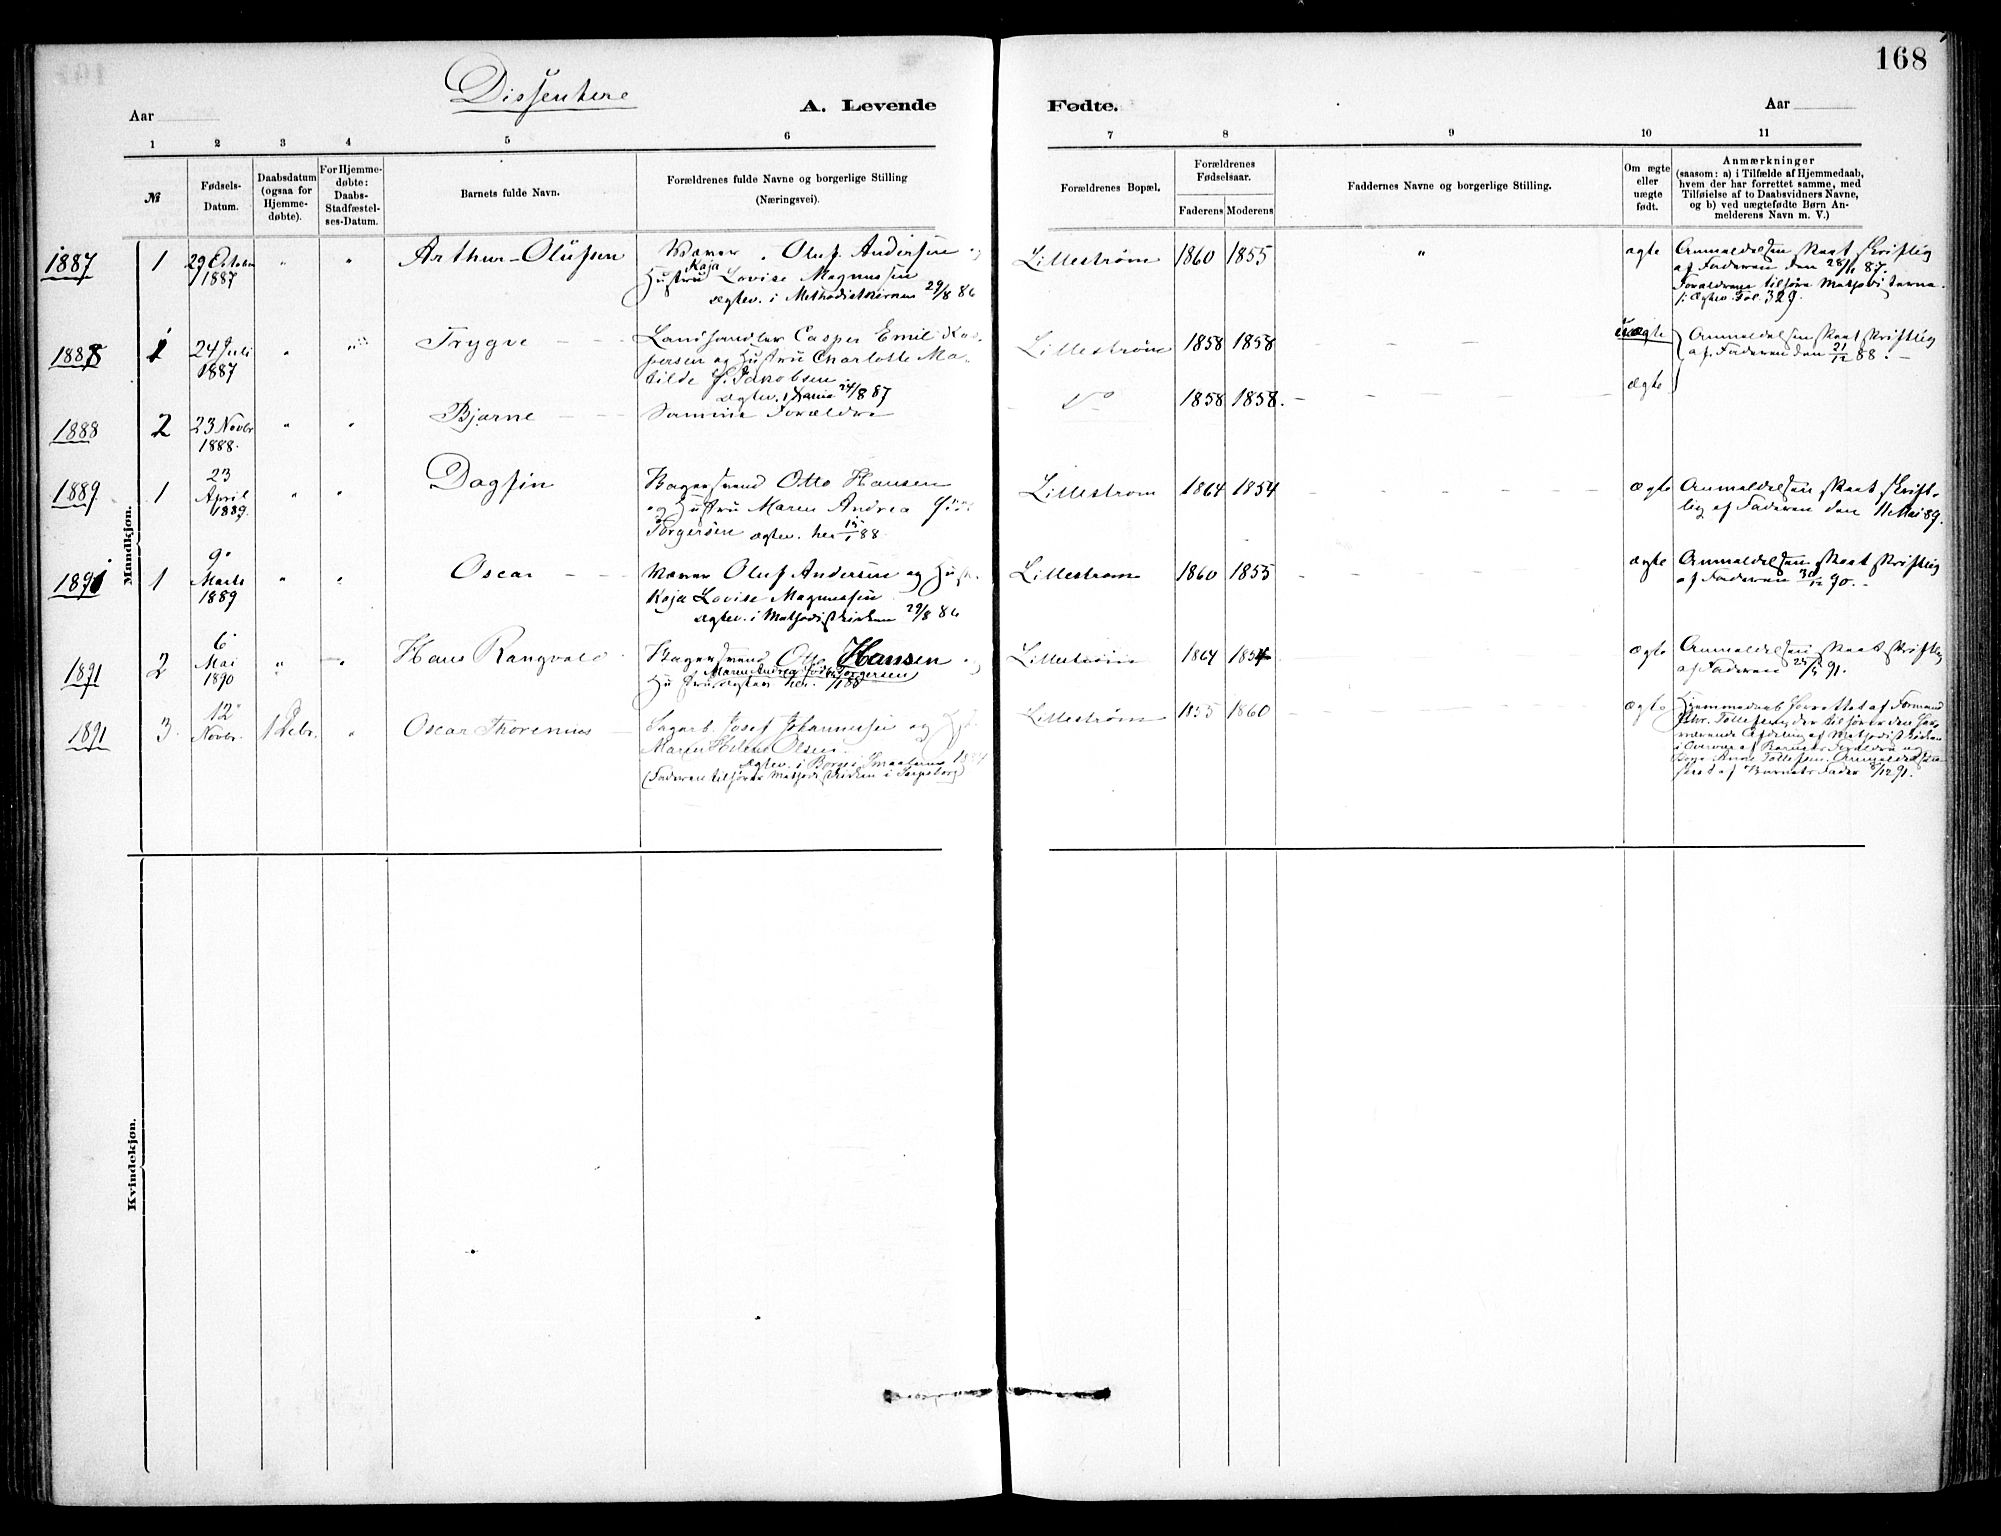 168
Dissentere
Aar
A. Levende
Fødte.
Aar
1 2 3 4 5 6 7 8 9 10 11
№
Fødsels-
Datum.
Daabsdatum
(ogsaa for
Hjemme-
døbte).
For Hjemme-
døbte:
Daabs-
Stadfæstel-
ses-Datum.
Barnets fulde Navn.
Forældrenes fulde Navne og borgerlige Stilling
(Næringsvei).
Forældrenes Bopæl.
Forældrenes
Fødselsaar.
Faderens Moderens
Faddernes Navne og borgerlige Stilling.
Om ægte
eller
uægte
født.
Anmærkninger
(saasom: a) i Tilfælde af Hjemmedaab,
hvem der har forrettet samme, med
Tilføielse af to Daabsvidners Navne,
og b) ved uægtefødte Børn An-
melderens Navn m. V.)
Mandkjøn.
1887
1
29 October
1887
Arthur Olufsen
Væver Oluf Andersen og
Kaja
Hustru Lovise Magnussen
Ægtev. i Methodistkirken 29/8 86
Lillestrøm
1860 1855
ægte
Anmeldelsen skeet skriftlig
af Faderen den 28/11 87.
Forældrene tilhøre Methodisterne.
Ægtev. Fol. 329.
1888
1
24 Juli
1887
Trygve
Landhandler Casper Emil Kas-
persen og Hustru Charlotte Ma-
tilde f. Jakobsen.
Ægtev. 24/8 87
Lillestrøm
1858 1858
uægte
Anmeldelsen skeet skriftlig
af Faderen den 21/12 88.
1888
2
23 Novbr
1888.
Bjarne
Samme Forældre
Do
1858 1858.
ægte
1889
1
23
April
1889.
Dagfin
Bagersvend Otto Hansen
og Hustru Maren Andrea
Torgersen Ægtev. her 15/1 88
Lillestrøm
1864 1854
ægte
Anmeldelsen skeet skrift-
lig af Faderen den 11 Mai 89.
1891
1
9
Marts
1889
Oscar
Væver Oluf Andersen og Hust.
Kaja Lovise Magnussen
Ægtev. i Methodistkirken 29/8 86
Lillestrøm
1860 1855
ægte
Anmeldelsen skeet skriftlig
af Faderen 30/12 90.
1891
2
6
Mai
1890
Hans Rangvald
Bagersvend Otto Hansen og
Maren Andrea født Torgersen
Hustru Ægtev. her. /1 88
Lillestrøm
1864 1854
ægte
Anmeldelsen skeet skriftlig
af Faderen 91.
1891
3
12
Novbr.
1 Debr.
Oscar Thorenius
Sagarb. Josef Johannesen og
Maren Helene Olsen.
Ægtev. i Borge Smaalenene
(Faderen tilhører Methodistkirken i Sarpsborg)
Lillestrøm
1855 1860
ægte
Hjemmedaab forrettet af Formand
Chr. Tollefsen, der tilhører den her-
værende Afdeling af Methodistkirken
i Overvær af Barnets Forældre og
Anne Tollefsen. Anmeldelse
af Barnets Fader 8/12 91.
Kvindekjøn.